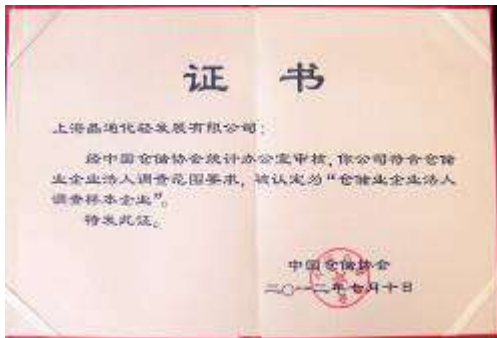 证 书
上海晶通化轻发展有限公司：
经中国仓储协会统计办公室审核，你公司符合仓储
业企业法人调查范围要求，被认定为“仓储业企业法人
调查样本企业”。
特发此证。
中国仓储协会
二〇一二年七月十日